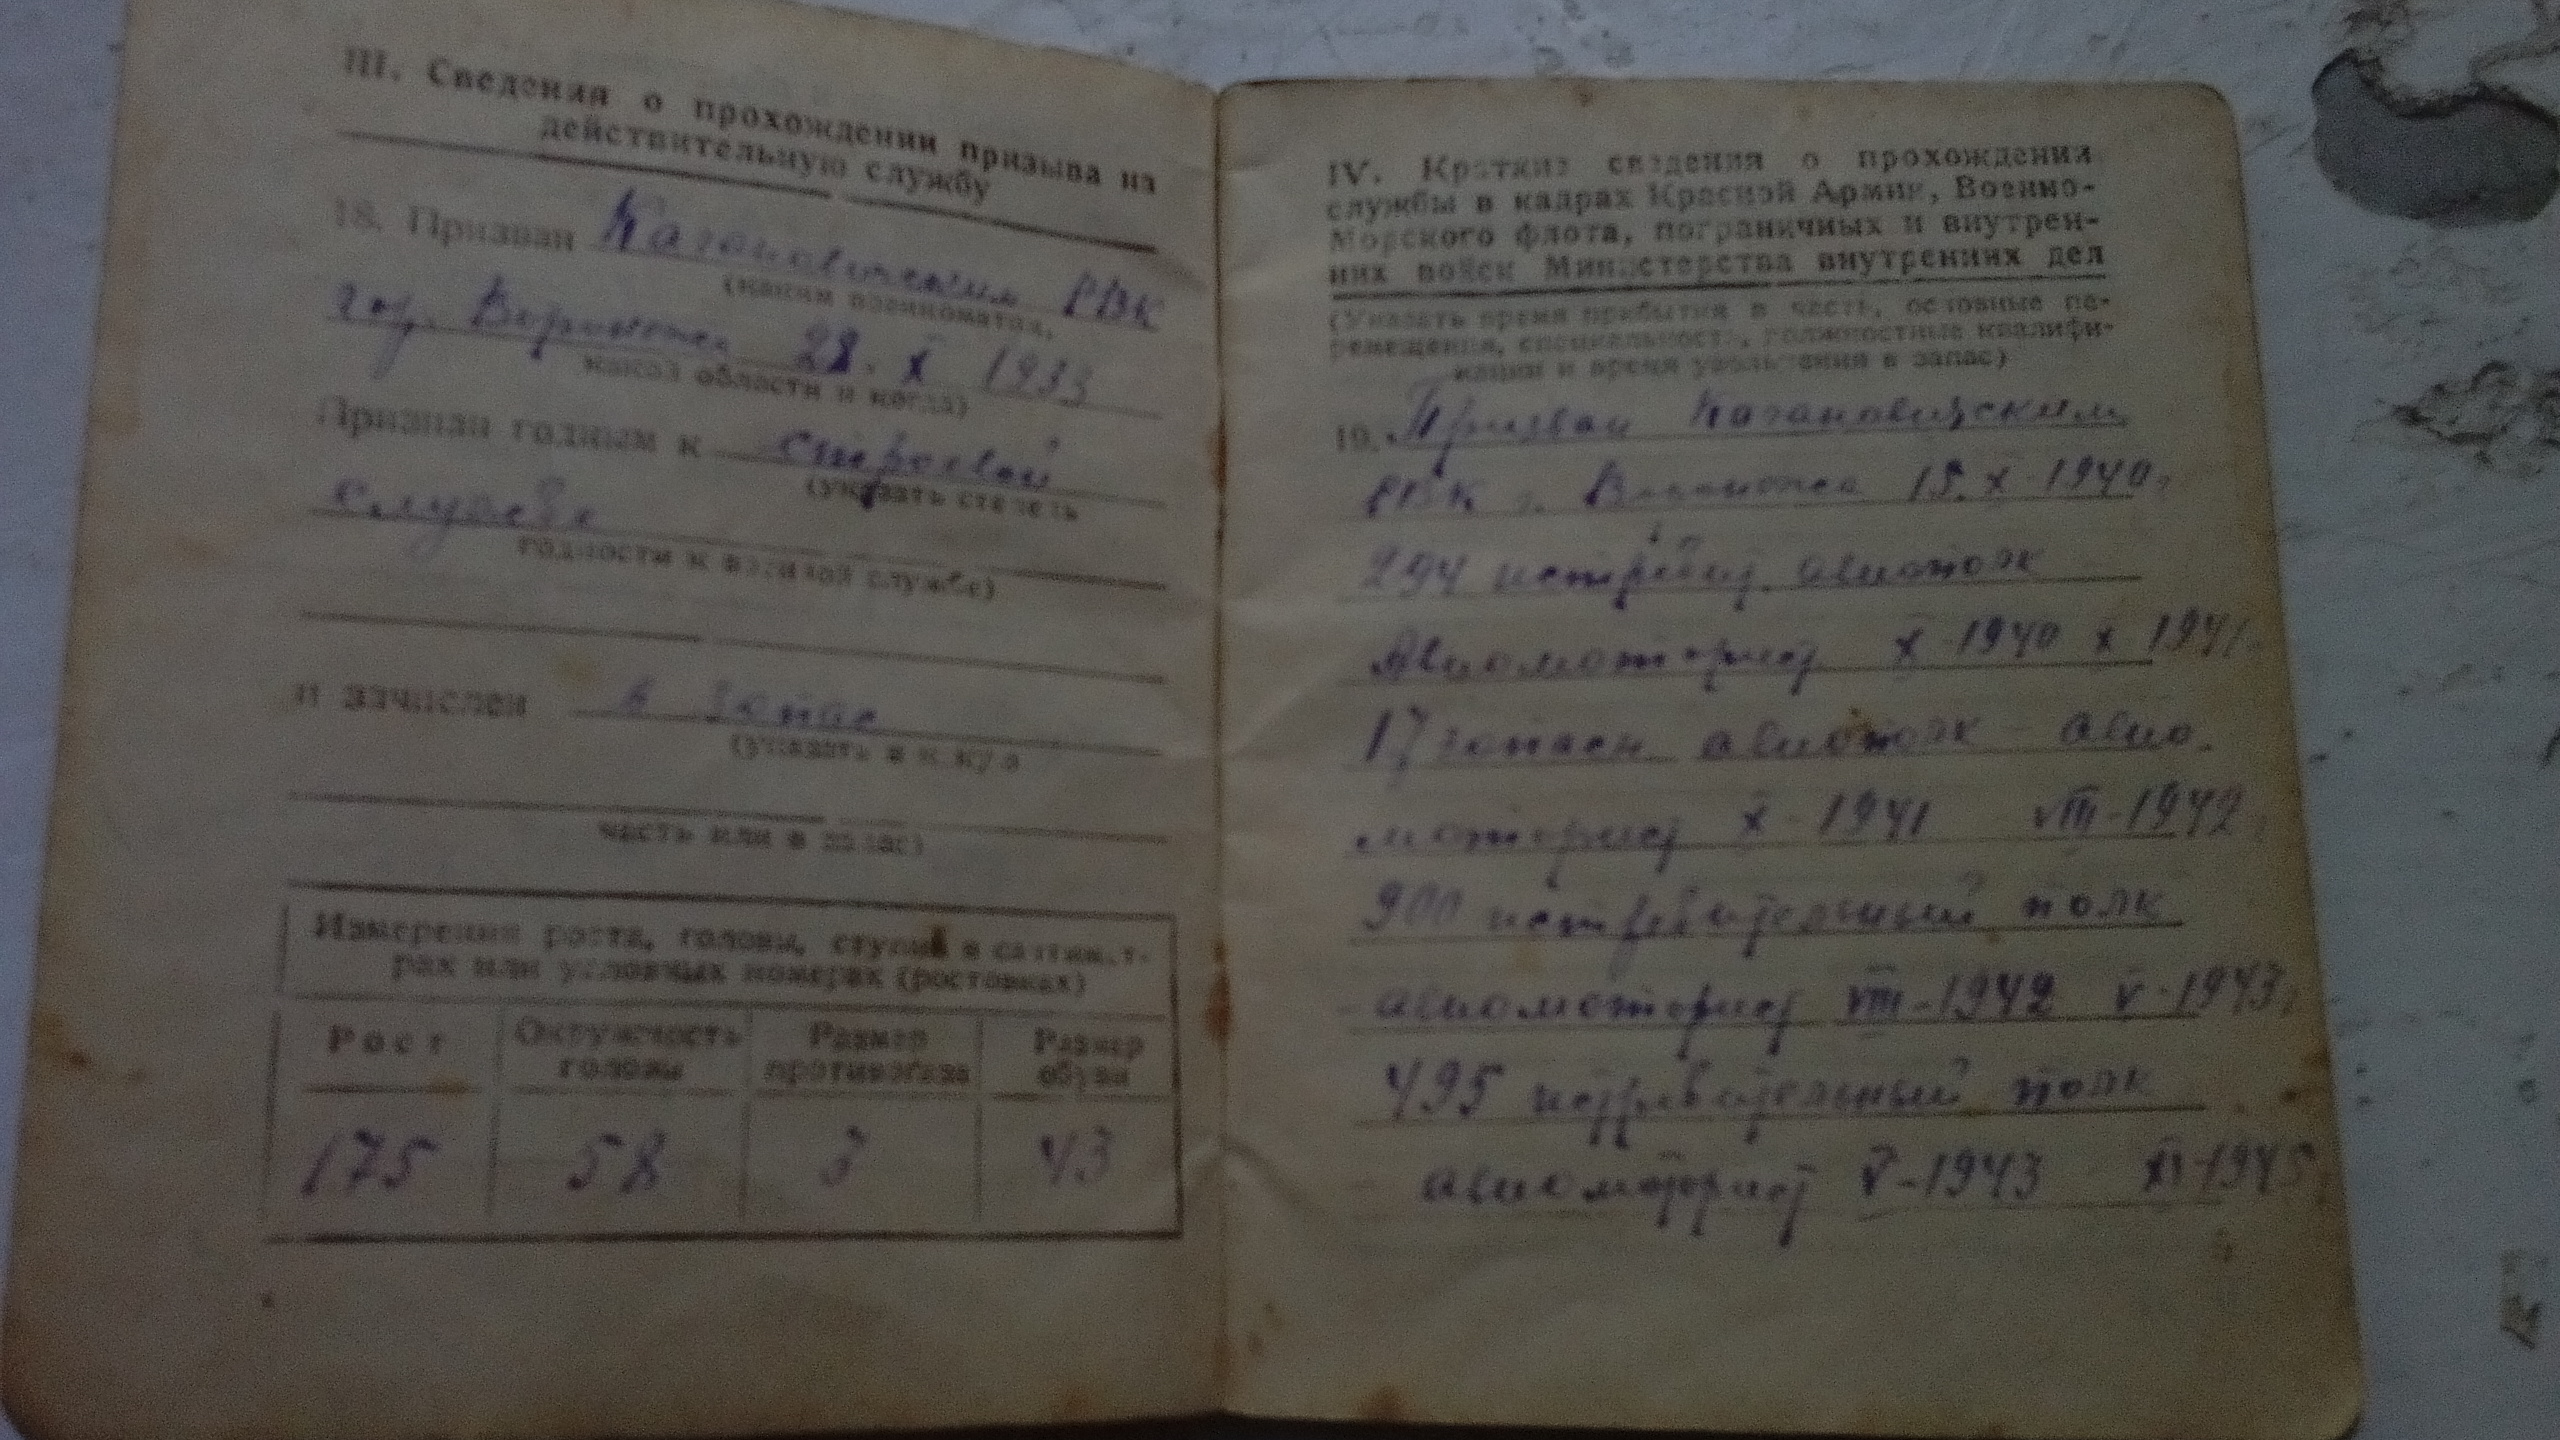 III. Сведения о прохождении призыва на
действительную службу
18. Призван Кагановическим РВК
(каким военкоматом,
гор. Воронежа 28. X 1933
какой области и когда)
Признан годным к строевой
(указать степень
службе
годности к военной службе)
и зачислен в запас
(указать в какую
часть или в запас)
Измерения роста, головы, ступни в сантимет-
рах или условных номерах (ростовках)
Рост Окружность головы Размер противогаза Размер обуви
175 58 3 43
IV. Краткие сведения о прохождении
службы в кадрах Красной Армии, Военно-
Морского флота, пограничных и внутрен-
них войск Министерства внутренних дел
(Указать время прибытия в часть, основные пе-
ремещения, специальность, должностные квалифи-
кации и время увольнения в запас)
19. Призван Кагановическим
РВК г. Воронежа 15. X 1940г.
294 истребит. авиополк
Авиомоторист X 1940 X 1941г.
17 запасн авиополк - авио-
моторист X - 1941 VIII-1942
900 истребительный полк
авиомоторист VIII-1942 V-1943г
495 истребительный полк
авиомоторист V-1943 XI-1945